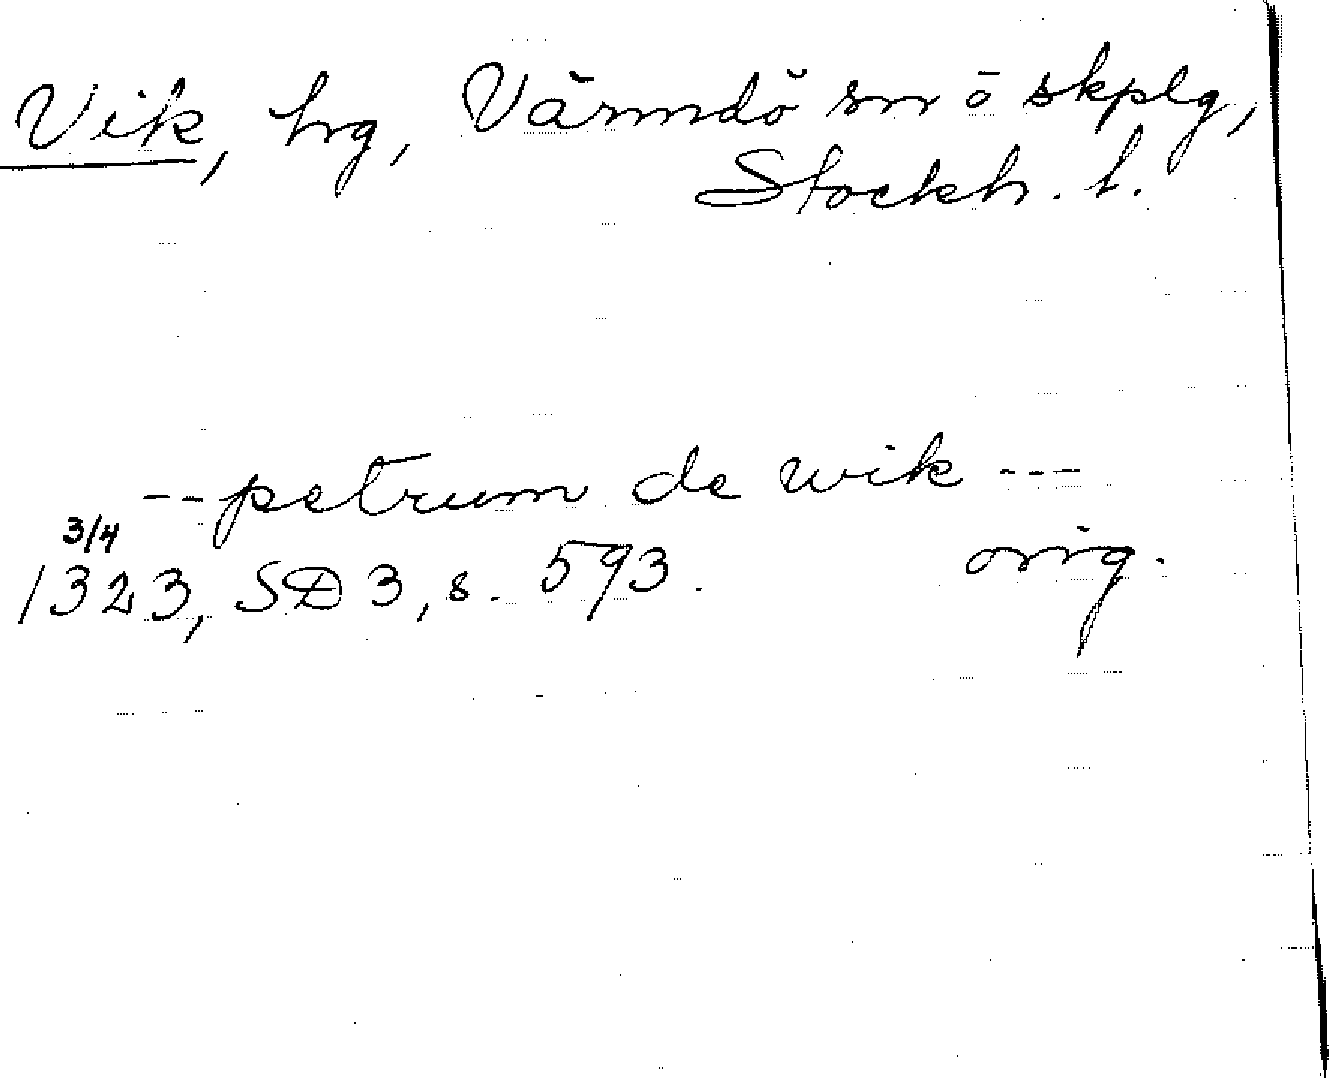 Vik, hg, Värmdö sn o skplg,
Stockh. l.
-- petrum de wik ---
3/4
1323, SD 3, s. 593. orig.